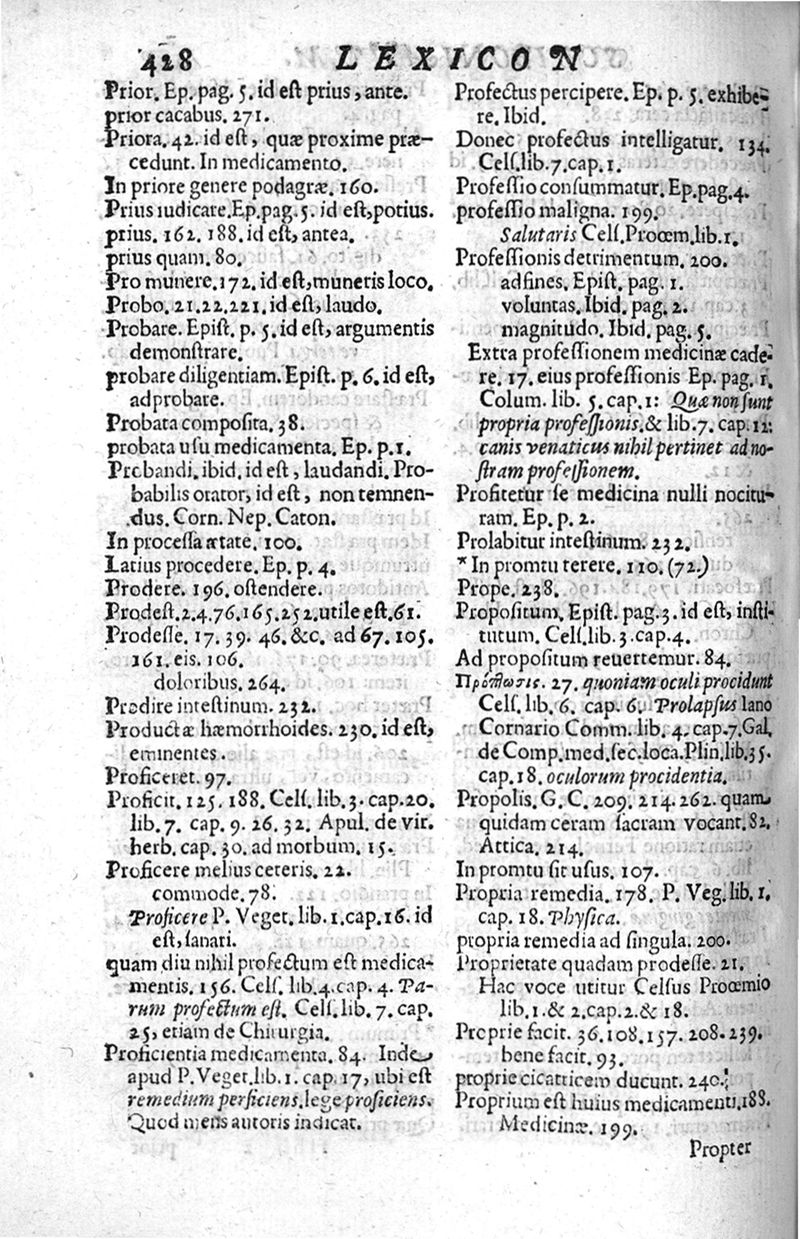 428 LEXICON
Prior. Ep. pag. 5. id est prius, ante.
prior cacabus. 271.
Priora. 42. id est, quæ proxime præ-
cedunt. In medicamento.
In priore genere podagræ. 160.
Prius iudicare. Ep. pag. 5. id est, potius.
prius. 162. 188. id est, antea.
prius quam. 80.
Pro munere. 172. id est, muneris loco.
Probo. 21. 22. 221. id est, laudo.
Probare. Epist. p. 5. id est, argumentis
demonstrare.
probare diligentiam. Epist. p. 6. id est,
adprobare.
Probata composita. 38.
probata usu medicamenta. Ep. p. 1.
Probandi. ibid. id est, laudandi. Pro-
babilis orator, id est, non temnen-
dus. Corn. Nep. Caton.
In processa ætate. 100.
Latius procedere. Ep. p. 4.
Prodere. 196. ostendere.
Prodest. 2. 4. 76. 165. 252. utile est. 61.
Prodesse. 17. 39. 46. &c. ad 67. 105.
161. eis. 106.
doloribus. 264.
Prodire intestinum. 232.
Productæ hæmorrhoides. 230. id est,
eminentes.
Proficeret. 97.
Proficit. 125. 188. Cels. lib. 3. cap. 20.
lib. 7. cap. 9. 26. 32. Apul. de vir.
herb. cap. 30. ad morbum. 15.
Proficere melius ceteris. 22.
commode. 78.
Proficere P. Veget. lib. 1. cap. 16. id
est, sanari.
quam diu nihil profectum est medica-
mentis. 156. Cels. lib. 4. cap. 4. Pa-
rum profectum est. Cels. lib. 7. cap.
25, etiam de Chirurgia.
Proficientia medicamenta. 84. Inde
apud P. Veget. lib. 1. cap. 17, ubi est
remedium perficiens. lege proficiens.
Quod mens autoris indicat.
Profectus percipere. Ep. p. 5. exhibe-
re. Ibid.
Donec profectus intelligatur. 134.
Cels. lib. 7. cap. 1.
Professio consummatur. Ep. pag. 4.
professio maligna. 199.
Salutaris Cels. Prooem. lib. 1.
Professionis detrimentum. 200.
adfines. Epist. pag. 1.
voluntas. Ibid. pag. 2.
magnitudo. Ibid. pag. 5.
Extra professionem medicinæ cade-
re. 17. eius professionis Ep. pag. 1.
Colum. lib. 5. cap. 1: Quæ non sunt
propria professionis. & lib. 7. cap. 12:
canis venaticus nihil pertinet ad no-
stram professionem.
Profitetur se medicina nulli nocitu-
ram. Ep. p. 2.
Prolabitur intestinum. 232.
* In promtu terere. 110. (72.)
Prope. 238.
Propositum. Epist. pag. 3. id est, insti-
tutum. Cels. lib. 3. cap. 4.
Ad propositum reuertemur. 84.
Πρόπτωσις. 27. quoniam oculi procidunt
Cels. lib. 6. cap. 6. Prolapsus Iano
Cornario Comm. lib. 4. cap. 7. Gal.
de Comp. med. sec. loca. Plin. lib. 35.
cap. 18. oculorum procidentia.
Propolis. G. C. 209. 214. 262. quam
quidam ceram sacram vocant. 82.
Attica. 214.
In promtu sit usus. 107.
Propria remedia. 178. P. Veg. lib. 1.
cap. 18. Physica.
propria remedia ad singula. 200.
Proprietate quadam prodesse. 21.
Hac voce utitur Celsus Prooemio
lib. 1. & 2. cap. 2. & 18.
Proprie facit. 36. 108. 157. 208. 239.
bene facit. 93.
proprie cicatricem ducunt. 240.
Proprium est huius medicamenti. 188.
Medicinæ. 199.
Propter